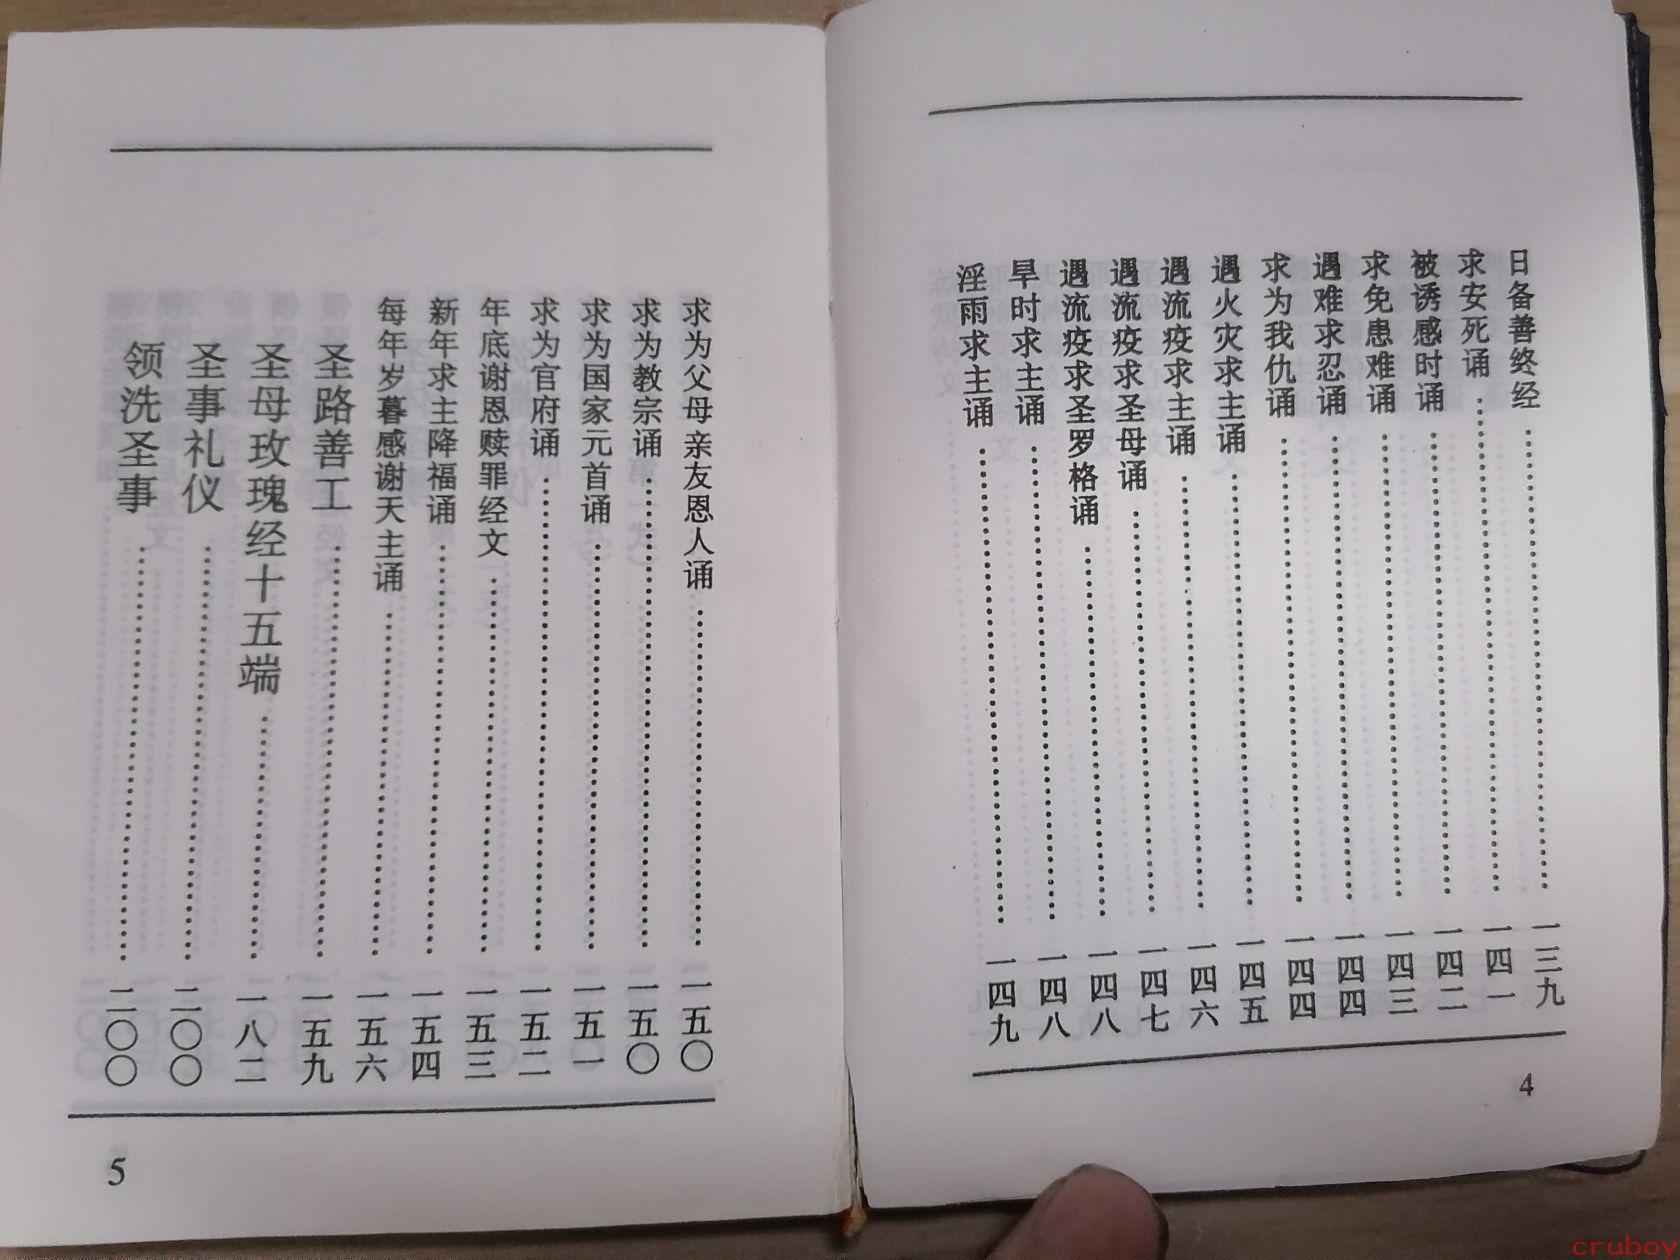 日备善终经……………………一三九
求安死诵……………………一四一
被诱感时诵……………………一四二
求免患难诵……………………一四三
遇难求忍诵……………………一四四
求为我仇诵……………………一四四
遇火灾求主诵……………………一四五
遇流疫求主诵……………………一四六
遇流疫求圣母诵……………………一四七
遇流疫求圣罗格诵……………………一四八
旱时求主诵……………………一四八
淫雨求主诵……………………一四九
4
求为父母亲友恩人诵……………………一五〇
求为教宗诵……………………一五〇
求为国家元首诵……………………一五一
求为官府诵……………………一五二
年底谢恩赎罪经文……………………一五三
新年求主降福诵……………………一五四
每年岁暮感谢天主诵……………………一五六
圣路善工……………………一五九
圣母玫瑰经十五端……………………一八二
圣事礼仪……………………二〇〇
领洗圣事……………………二〇〇
5
cruboy